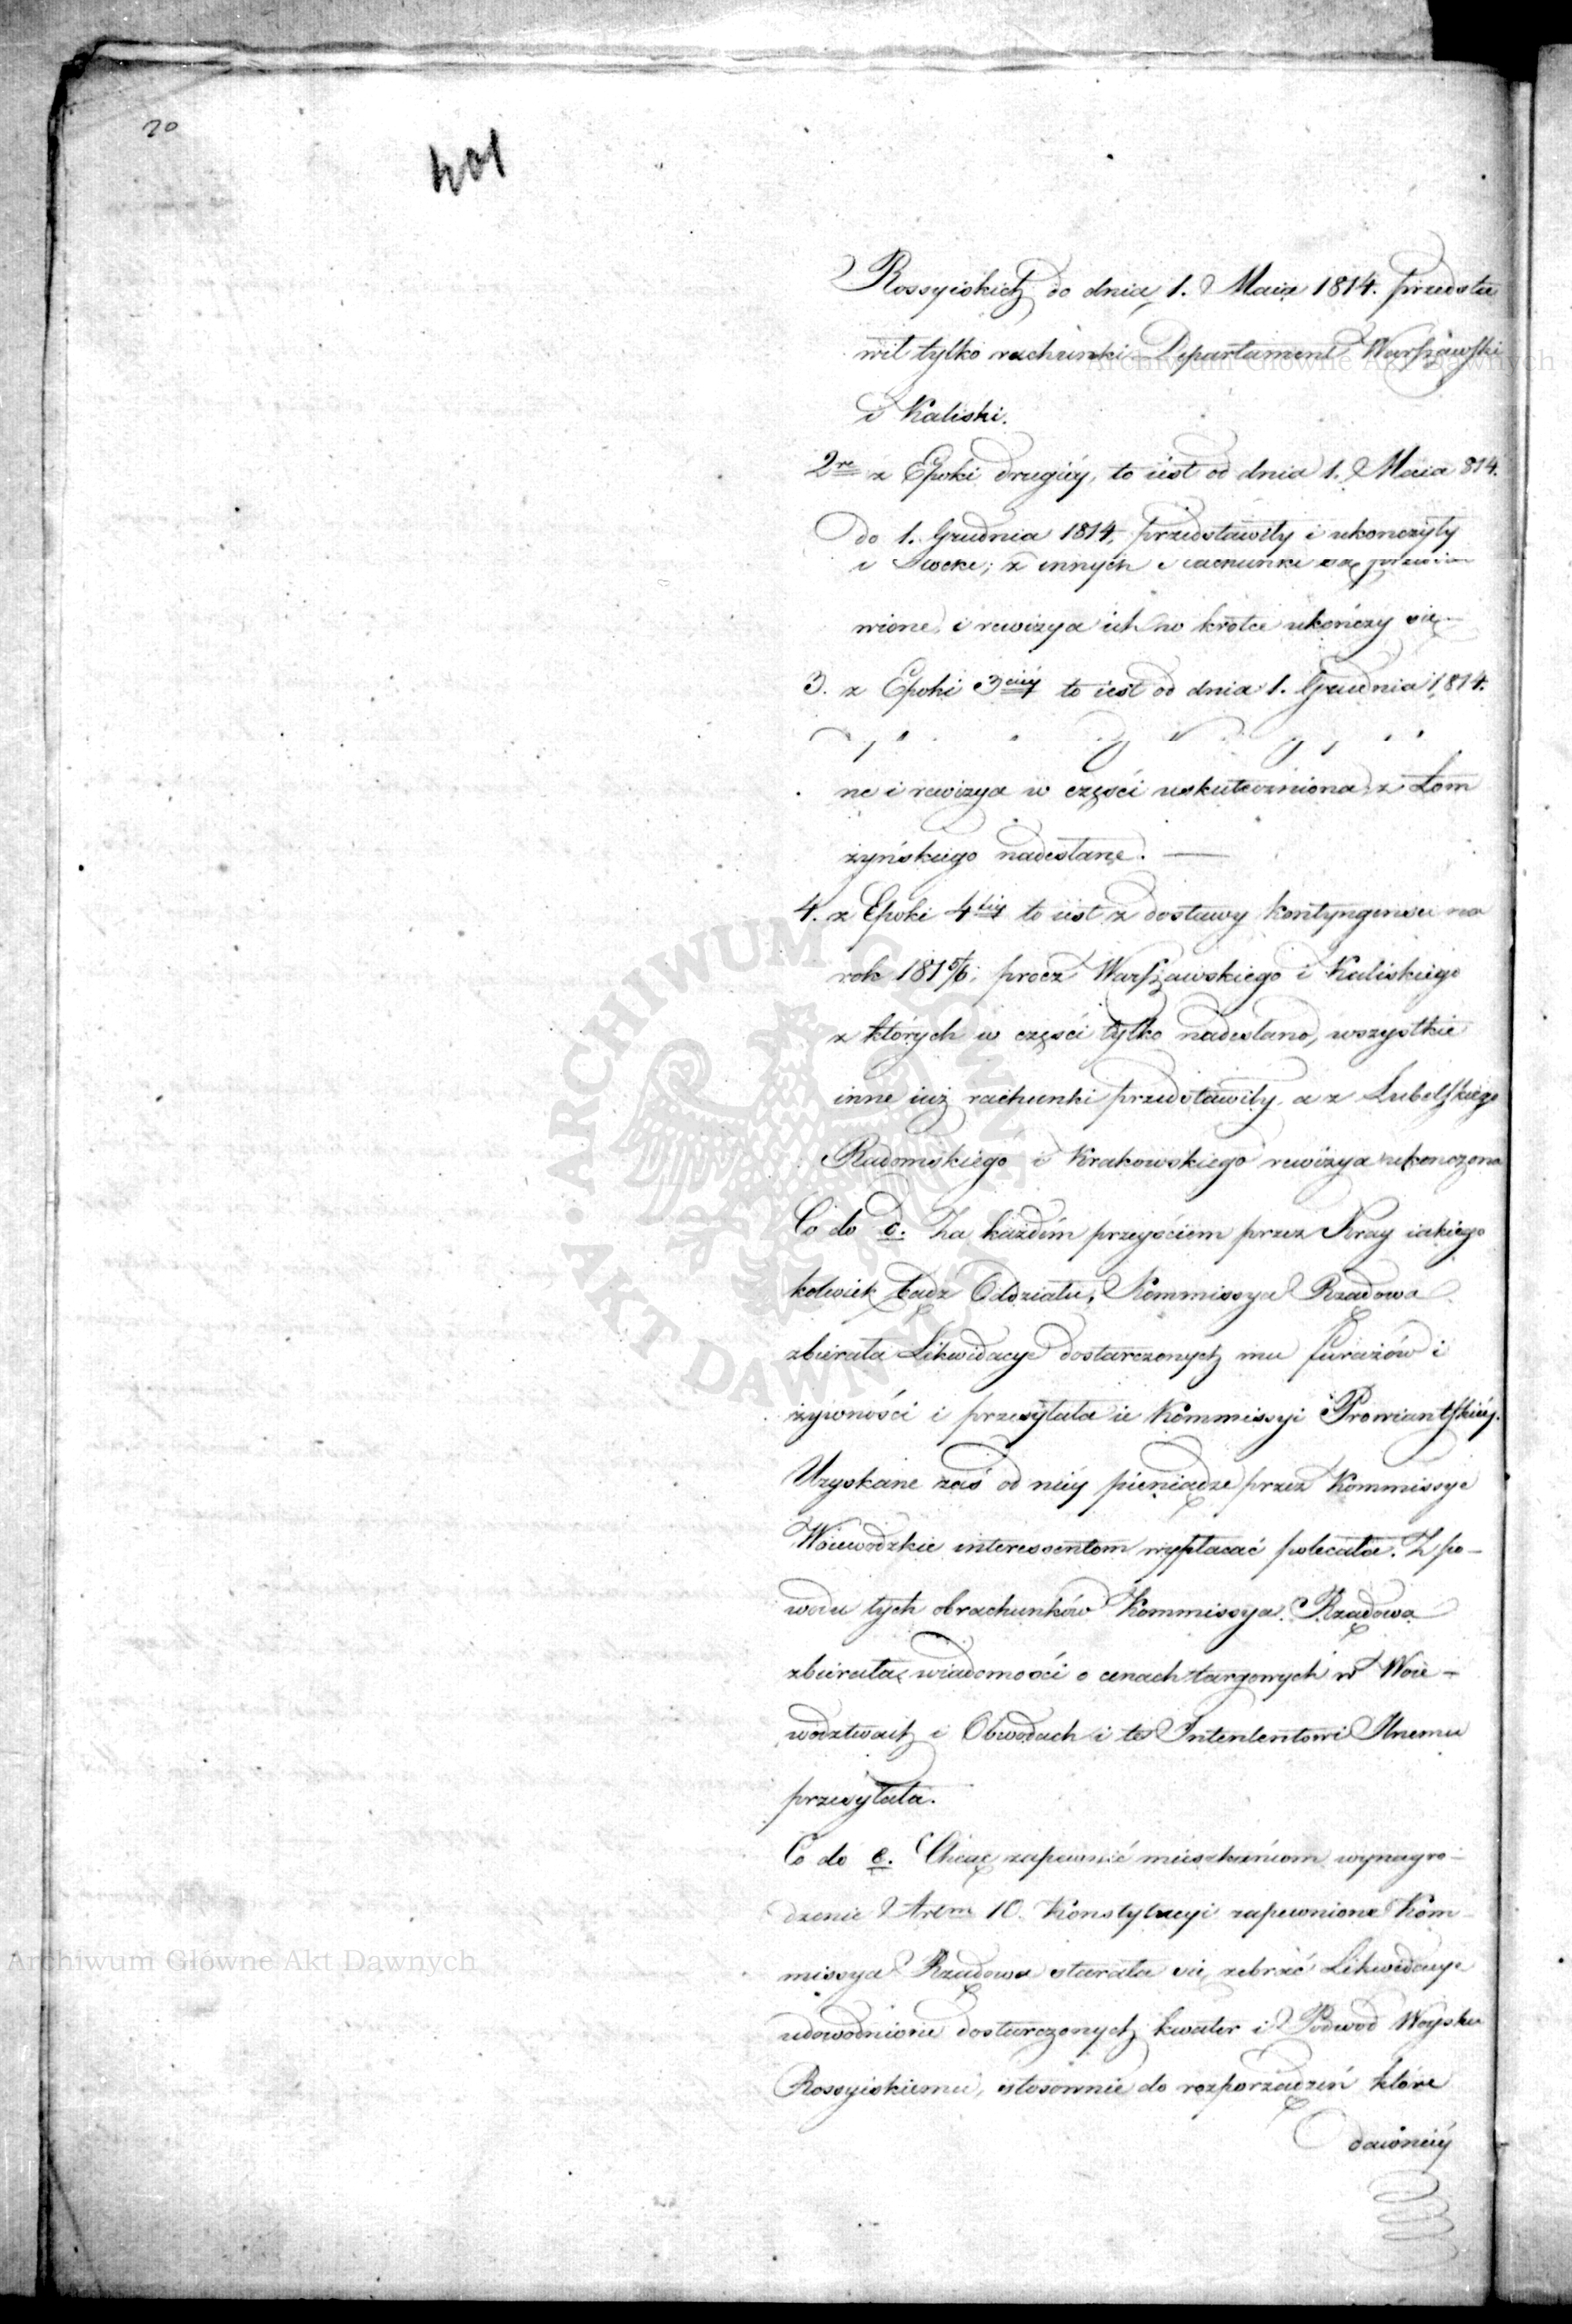 20
401
Rossyiskich do dnia 1. Maia 1814. przedsta
wił tylko rachunki Departament Warszawski
i Kaliski.
2re z Epoki drugiéy, to iest od dnia 1. Maia 814.
do 1. Grudnia 1814, przedstawiły i ukończyły
i z innych
wione, i rewizya ich w krótce ukończy się
3. z Epoki 3ciéy to iest od dnia 1. Grudnia 1814.
ne i rewizya w części uskuteczniona, z Łom
żyńskiego nadesłane.
4. z Epoki 4téy to iest z dostawy kontyngensu na
rok 1815/6; procz Warszawskiego i Kaliskiego
z których w części tylko nadesłano, wszystkie
inne iuż rachunki przedstawiły, a z Lubelskiego
Radomskiego i Krakowskiego rewizya ukończona
Co do d. Za każdém przeyściem przez Kray iakiego
kolwiek bądz Oddziału, Kommissya Rządowa
zbierała Likwidacye dostarczonych mu furażów i
żywności i przesyłała ie Kommissyi Prowiantskiéy.
Uzyskane zaś od niéy pieniądze przez Kommissye
Woiewodzkie interessentom wypłacać polecała. Z po-
wodu tych obrachunków Kommissya Rządowa
zbierała wiadomości o cenach targowych w Woie-
wodztwach i Obwodach i te Intendentowi Jlnemu
przesyłała.
Co do e. Chcąc zapewnić mieszkańcom wynagro-
dzenie Artm 10. Konstytucyi zapewnione Kom-
missya Rządowa starała się zebrać Likwidacye
udowodnione dostarczonych kwater i Podwod Woysku
Rossyiskiemu, stosownie do rozporządzeń które
dawniéy
Archiwum Główne Akt Dawnych
Archiwum Główne Akt Dawnych
ARCHIWUM GŁÓWNE AKT DAWNYCH